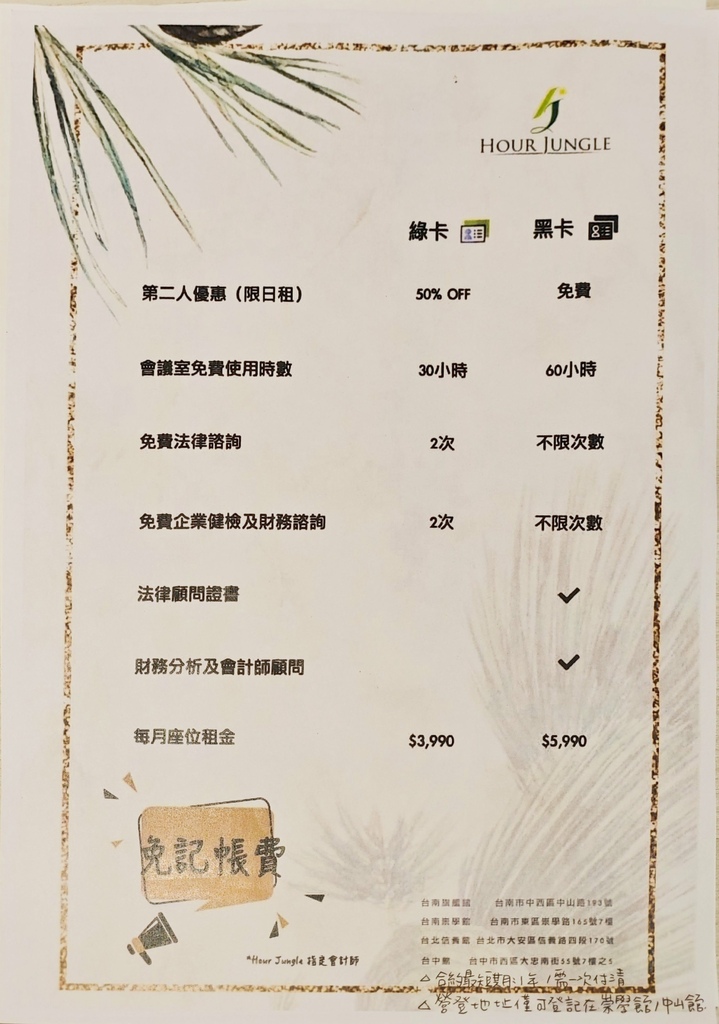 HOUR JUNGLE
綠卡 黑卡
第二人優惠（限日租） 50% OFF 免費
會議室免費使用時數 30小時 60小時
免費法律諮詢 2次 不限次數
免費企業健檢及財務諮詢 2次 不限次數
法律顧問證書 ✓
財務分析及會計師顧問 ✓
每月座位租金 $3,990 $5,990
免記帳費
*Hour Jungle 指定會計師
台南旗艦館 台南市中西區中山路193號
台南崇學館 台南市東區崇學路165號7樓
台北信義館 台北市大安區信義路四段170號
台中館 台中市西區大忠南街55號7樓之5
△ 合約最短期:1年/需一次付清
△ 營登地址僅可登記在崇學館/中山館